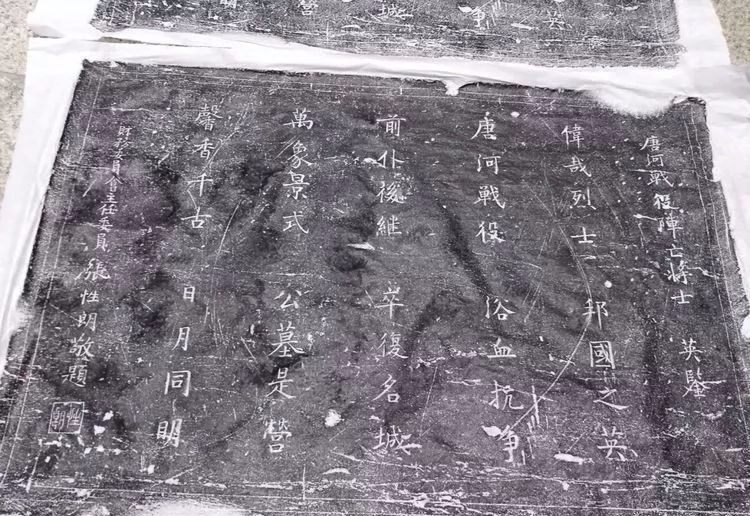 唐河戰役陣亡將士 英鑒
偉哉烈士 邦國之英
唐河戰役 浴血抗爭
前仆後継 卒復名城
萬象景式 公墓是營
馨香千古 日月同明
財務委員會主任委員 張性朗敬題